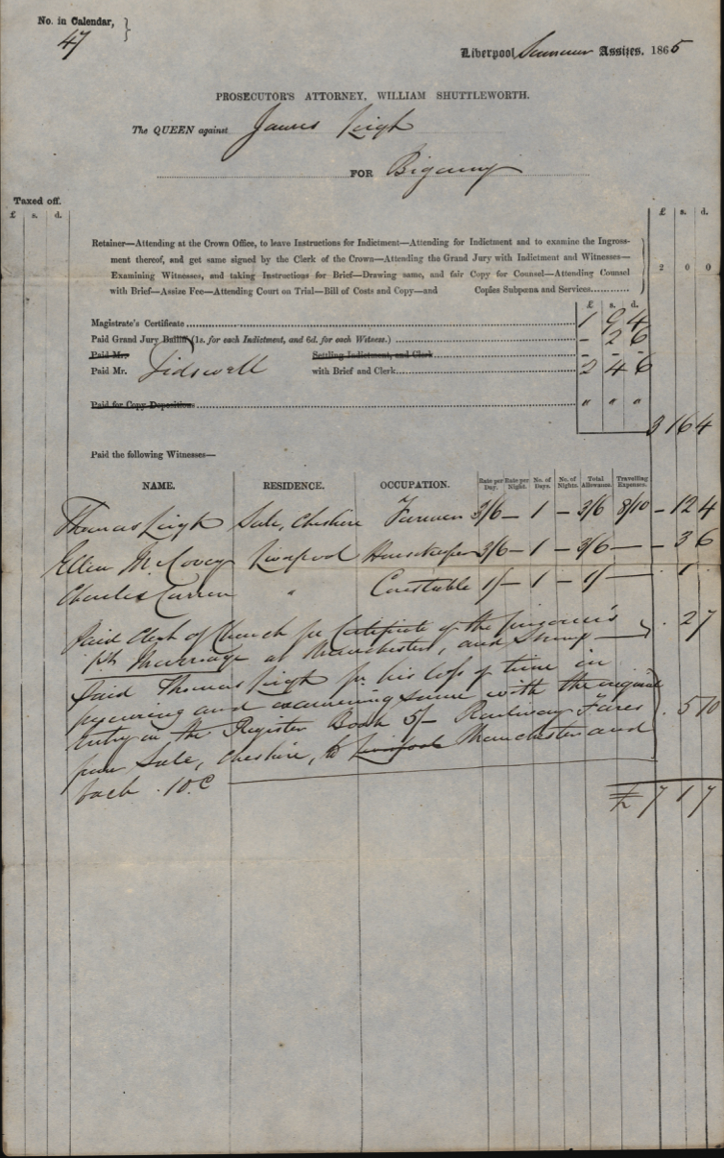 No. in Calendar, }
47
Liverpool Summer Assizes. 1865
PROSECUTOR'S ATTORNEY, WILLIAM SHUTTLEWORTH.
The QUEEN against James Leigh
FOR Bigamy
Taxed off.
£ s. d. £ s. d.
Retainer—Attending at the Crown Office, to leave Instructions for Indictment—Attending for Indictment and to examine the Ingross-
ment thereof, and get same signed by the Clerk of the Crown—Attending the Grand Jury with Indictment and Witnesses—
Examining Witnesses, and taking Instructions for Brief—Drawing same, and fair Copy for Counsel—Attending Counsel 2 0 0
with Brief—Assize Fee—Attending Court on Trial—Bill of Costs and Copy—and Copies Subpœna and Services
£ s. d.
Magistrate's Certificate 1 9 4
Paid Grand Jury Bailiff (1s. for each Indictment, and 6d. for each Witness.) - 2 6
Paid Mr. Settling Indictment, and Clerk - - -
Paid Mr. Tidswell with Brief and Clerk 2 4 6
Paid for Copy Depositions " " "
3 16 4
Paid the following Witnesses—
NAME. RESIDENCE. OCCUPATION. Rate per Day. Rate per Night. No. of Days. No. of Nights. Total Allowance. Travelling Expenses.
Thomas Leigh Sale, Cheshire Farmer 3/6 - 1 - 3/6 8/10 - 12 4
Ellen McCovey Liverpool Housekeeper 3/6 - 1 - 3/6 - - 3 6
Charles Curren " Constable 1/- 1 - 1/- . 1 .
Paid Clerk of Church for Certificate of the prisoner's
Marriage at Manchester, and Stamp . 2 7
Paid Thomas Leigh for his loss of time in
procuring and examining same with the original
Entry in the Register Book 5/- Railway Fares . 5 10
from Sale, Cheshire, to Liverpool Manchester and
back . 10.
£ 7 1 7